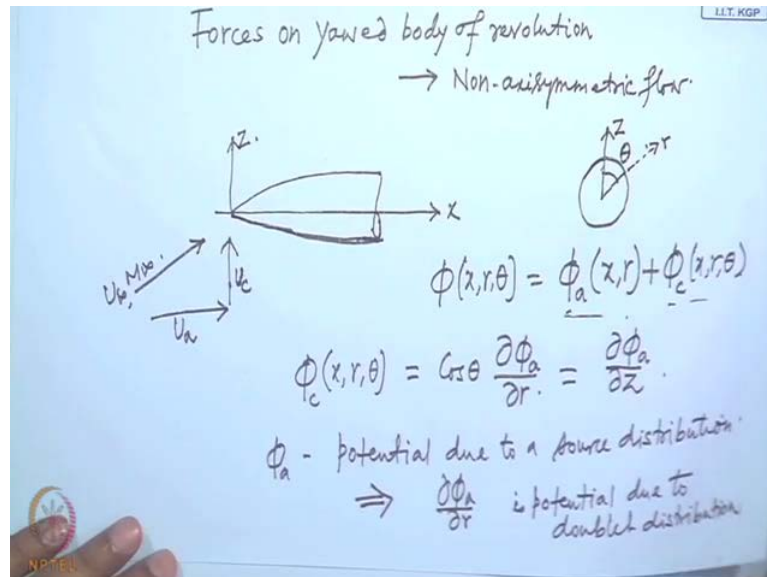 I.I.T. KGP
Forces on yawed body of revolution
→ Non-axisymmetric flow.
Z.
Z
θ
r
x
U∞, M∞.
Uc
Ua
ϕ(x,r,θ) = ϕa(x,r) + ϕc(x,r,θ)
ϕc(x,r,θ) = Cosθ ∂ϕa/∂r. = ∂ϕa/∂z.
ϕa - potential due to a source distribution.
⇒ ∂ϕa/∂r is potential due to
doublet distribution
NPTEL